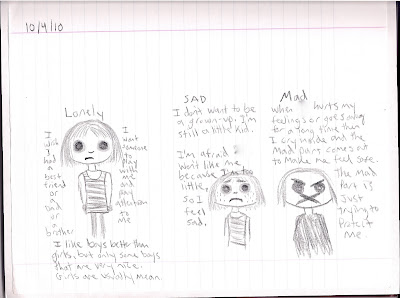 10/4/10
Lonely
I
wish
I
had a
best
friend
or a
or a
brother
I
want
someone
to
play
with
me
and pay
attention
to me
I like boys better than
girls, but only some boys
that are very nice.
Girls are usually mean.
SAD
I don't want to be
a grown-up. I'm
still a little kid.
I'm afraid
won't like me,
because I'm too
little,
so I
feel
sad.
Mad
when hurts my
feelings or goes away
for a long time then
I cry inside and the
Mad part comes out
to make me feel safe.
The Mad
Part is
Just
trying to
Protect
Me